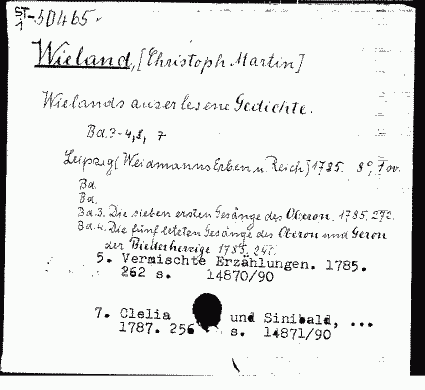 ST-50465.
1
Wieland, [Christoph Martin]
Wielands auserlesene Gedichte.
Bd. 3-4, 5, 7
Leipzig (Weidmanns Erben u. Reich) 1785. 8°,
Bd.
Bd.
Bd. 3. Die sieben ersten Gesänge des Oberon. 1785. 272.
Bd. 4. Die fünf letzten Gesänge des Oberon und Geron
der Biederherzige 1785.
5. Vermischte Erzählungen. 1785.
262 s. 14870/90
7. Clelia und Sinibald, ...
1787. 256 s. 14871/90